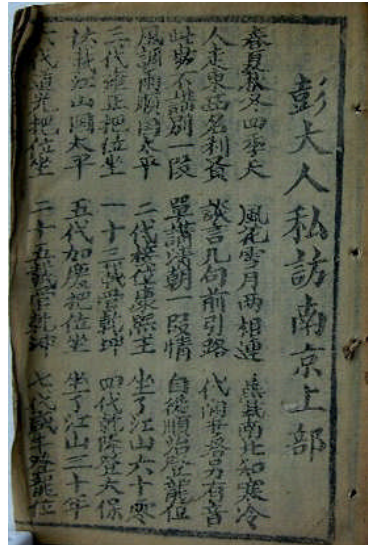 彭大人私訪南京上部
春夏秋冬四季天 風花雪月两相連 南北知寒冷
人走東西名利 談言几句前引路 代世善男有音
此不講别一段 單講清朝一段情 自從順治登龍位
風調雨順國太平 二代接位康熙王 坐了江山六十零
三代雍正把位坐 一十三載管乾坤 四代乾隆登大保
江山國太平 五代加慶把位坐 坐了江山三十年
六代道光把位坐 二十五載管乾坤 七代咸丰登龍位